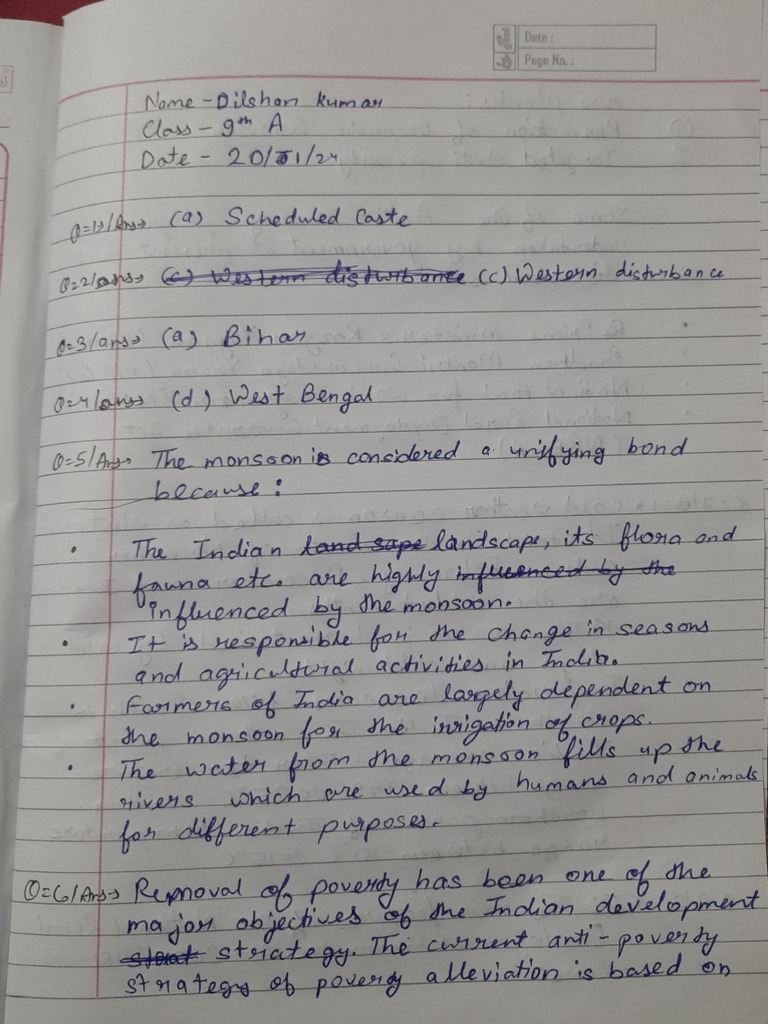 Date :
Page No. :
Name - Dilshan Kumar
Class - 9th A
Date - 20/01/24
Q=1)/Ans→ (a) Scheduled Caste
Q=2/ans→ (c) Western disturbance (c) Western disturbance
Q=3/ans→ (a) Bihar
Q=4/ans→ (d) West Bengal
Q=5/Ans→ The monsoon is considered a unifying bond
because :
• The Indian land sape landscape, its flora and
fauna etc. are highly influenced by the
influenced by the monsoon.
• It is responsible for the change in seasons
and agricultural activities in India.
• Farmers of India are largely dependent on
the monsoon for the irrigation of crops.
• The water from the monsoon fills up the
rivers which are used by humans and animals
for different purposes.
Q=6/Ans→ Removal of poverty has been one of the
major objectives of the Indian development
strategy. The current anti-poverty
strategy of poverty alleviation is based on